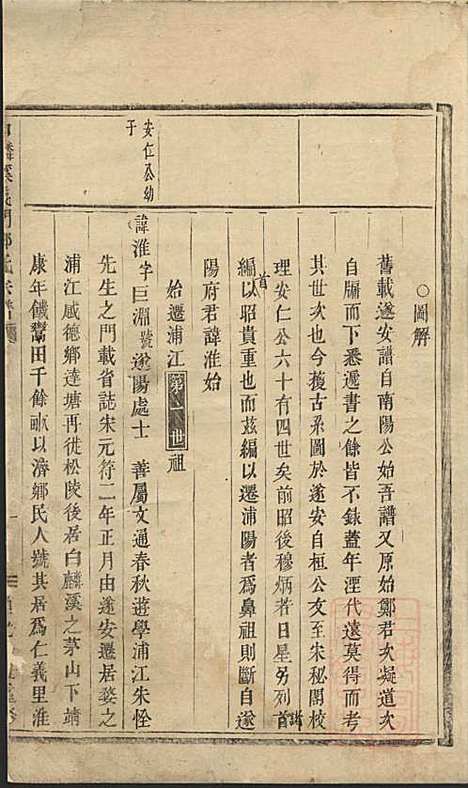 ○圖解
舊載遂安譜自南陽公始吾譜又原始鄭君次凝道次
自牖而下悉遞書之餘皆不錄蓋年湮代遠莫得而考
其世次也今獲古系圖於遂安自桓公友至朱秘閣校
理安仁公六十有四世矣前昭後穆炳若日星另列諸首
編以昭貴重也而茲編以遷浦陽者爲鼻祖則斷自遂
陽府君諱淮始
始遷浦江第一世祖
安仁公幼子
諱淮字巨淵號遂陽處士 善屬文通春秋遊學浦江朱恮
先生之門載省誌宋元符二年正月由遂安遷居婺之
浦江感德鄉達塘再徙松陵後居白麟溪之茅山下靖
康年饑鬻田千餘畝以濟鄉民人號其居爲仁義里淮